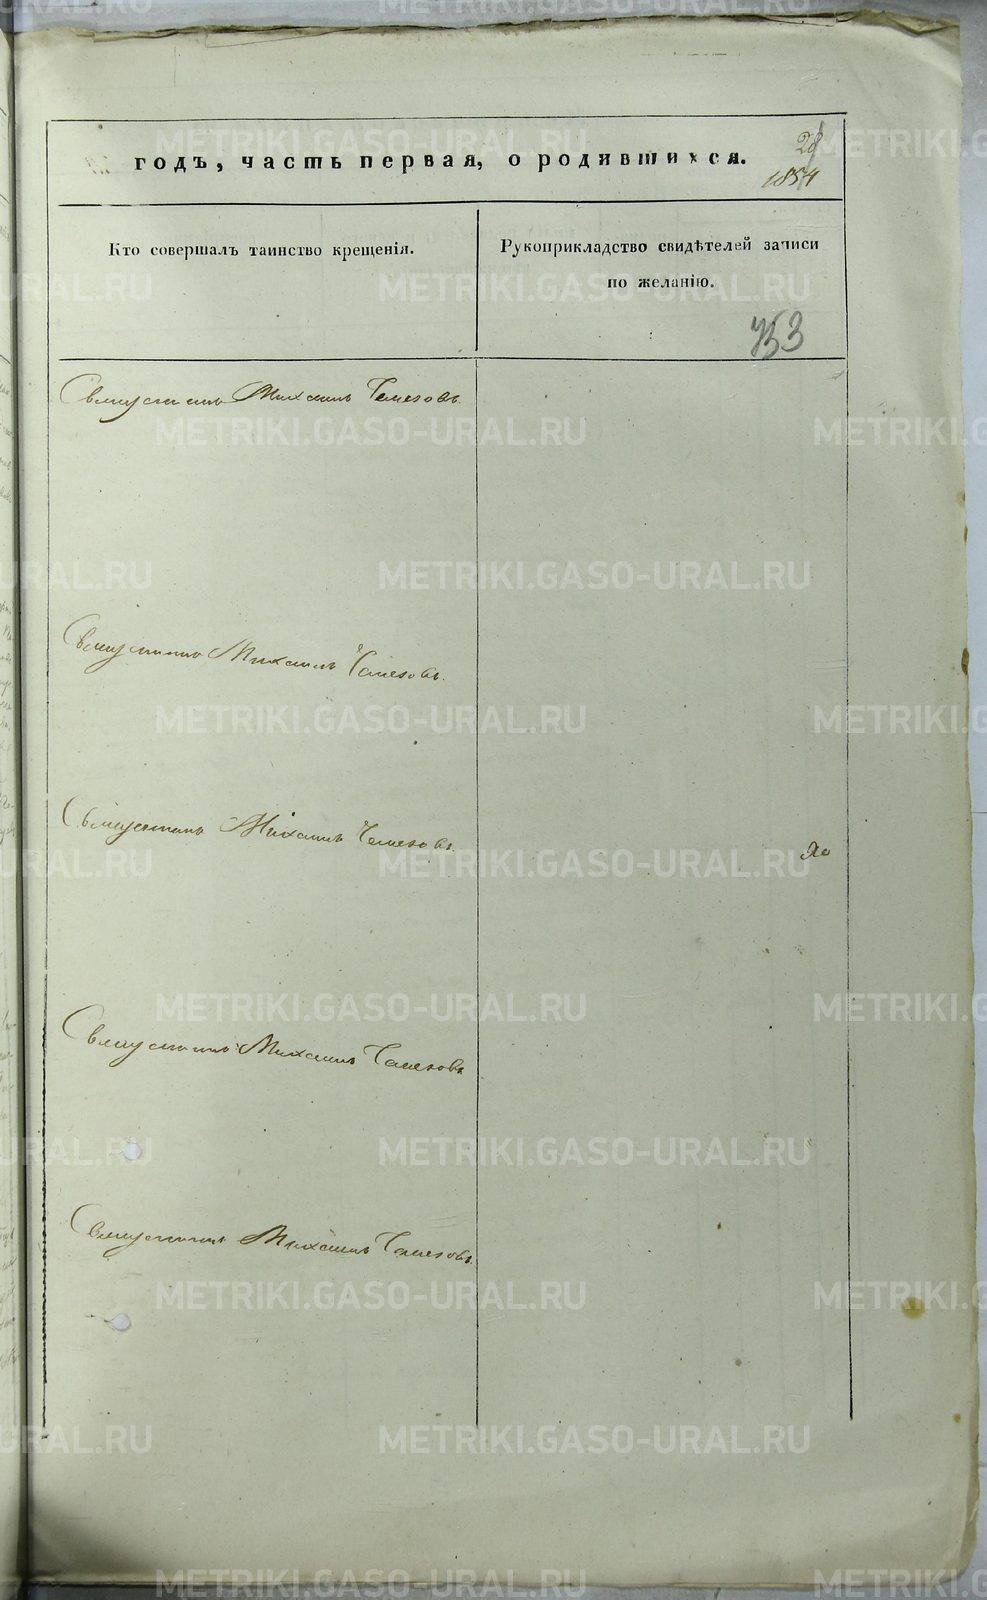 28
годъ, часть первая, о родившихся.
1854
Кто совершалъ таинство крещенія.
Рукоприкладство свидѣтелей записи
по желанію.
753
Священникъ Михаилъ Чемезовъ.
Священникъ Михаилъ Чемезовъ.
Священникъ Михаилъ Чемезовъ.
Священникъ Михаилъ Чемезовъ
Священникъ Михаилъ Чемезовъ.
METRIKI.GASO-URAL.RU